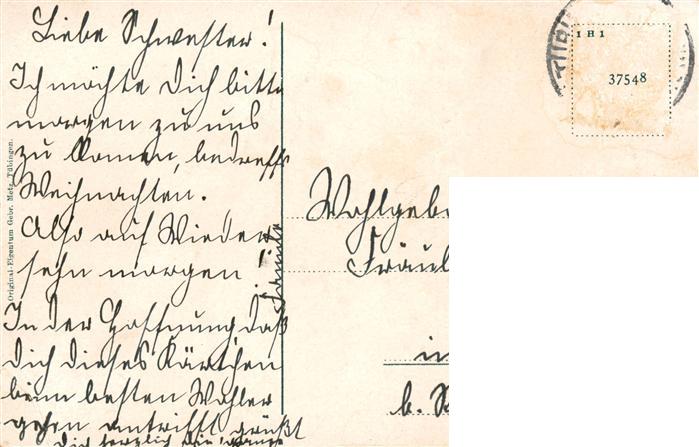 Liebe Schwester!
Ich möchte Dich bitte
morgen zu uns
zu komen, bedreffs
Weihnachten.
Also auf Wieder
sehn morgen!
In der Hoffnung daß
Dich dieses Kärtchen
beim besten Wohler
gehen antrifft grüßt
Dich herzlich
Original-Eigentum Gebr. Metz, Tübingen.
1 H 1
37548
Wohlgebo
Fräul
in
b. S